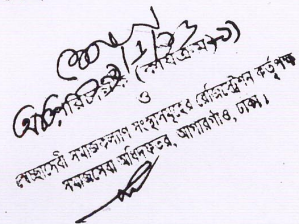 অতিরিক্ত পরিচালক (কার্যক্রম-১)
ও
স্বেচ্ছাসেবী সমাজকল্যাণ সংস্থাসমূহের রেজিস্ট্রেশন কর্তৃপক্ষ
সমাজসেবা অধিদফতর, আগারগাঁও, ঢাকা।